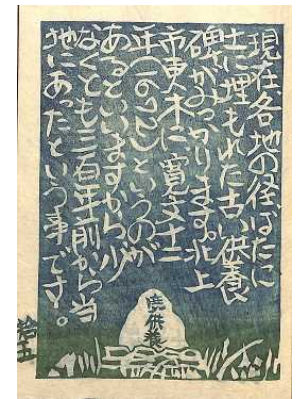 現在各地の径ばたに
土に埋もれた古い供養
碑がみつかります。北上
市更木に寛文十二
年(一六七二)というのが
あるといいますから少
なくとも三百年前から当
地にあったという事です。
供養
拾五